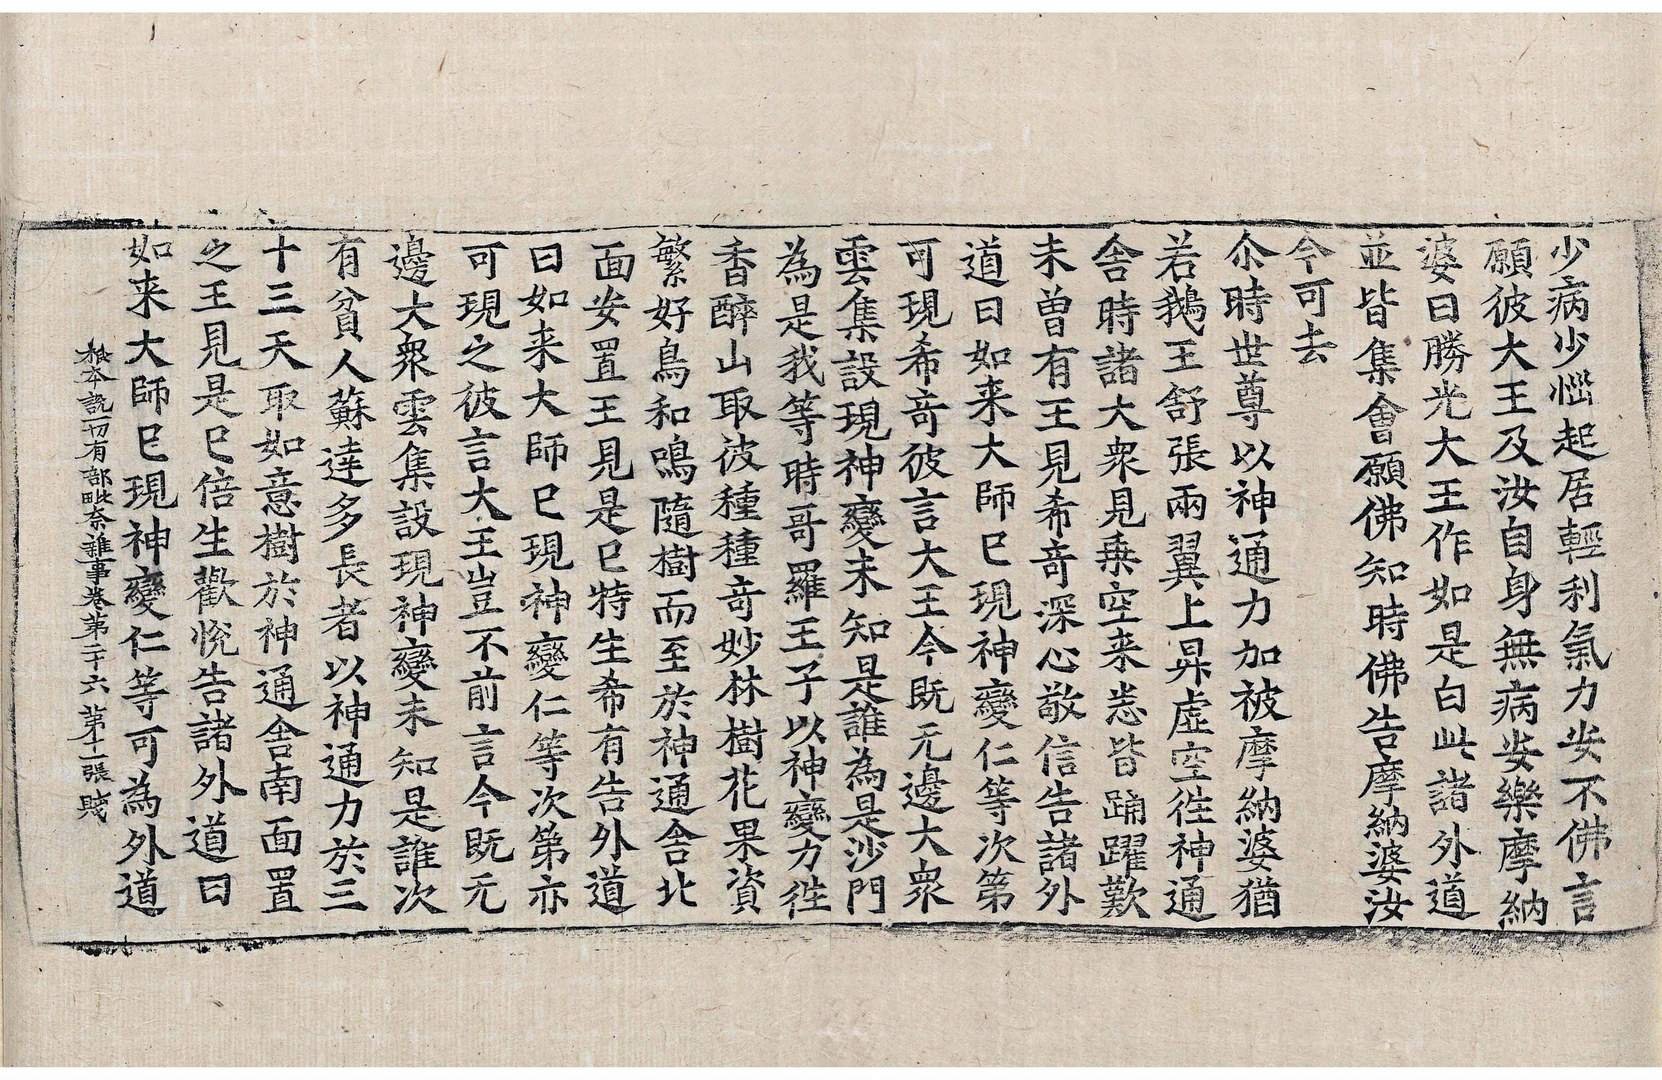 少病少惱起居輕利氣力安不佛言
願彼大王及汝自身無病安樂摩納
婆曰勝光大王作如是白此諸外道
並皆集會願佛知時佛告摩納婆汝
今可去
尒時世尊以神通力加被摩納婆猶
若鵝王舒張兩翼上昇虛空往神通
舍時諸大衆見乗空来悉皆踊躍歎
未曾有王見希竒深心敬信告諸外
道曰如来大師已現神變仁等次第
可現希竒彼言大王今既无邊大衆
雲集設現神變未知是誰為是沙門
為是我等時哥羅王子以神變力往
香醉山取彼種種竒妙林樹花果資
繁好鳥和鳴隨樹而至於神通舍北
面安置王見是已特生希有告外道
曰如来大師已現神變仁等次第亦
可現之彼言大王豈不前言今既无
邊大衆雲集設現神變未知是誰次
有貧人蘇達多長者以神通力於三
十三天取如意樹於神通舍南面置
之王見是已倍生歡悅告諸外道曰
如来大師已現神變仁等可為外道
根本說一切有部毗奈雜事卷第二十六 第十一張 賤